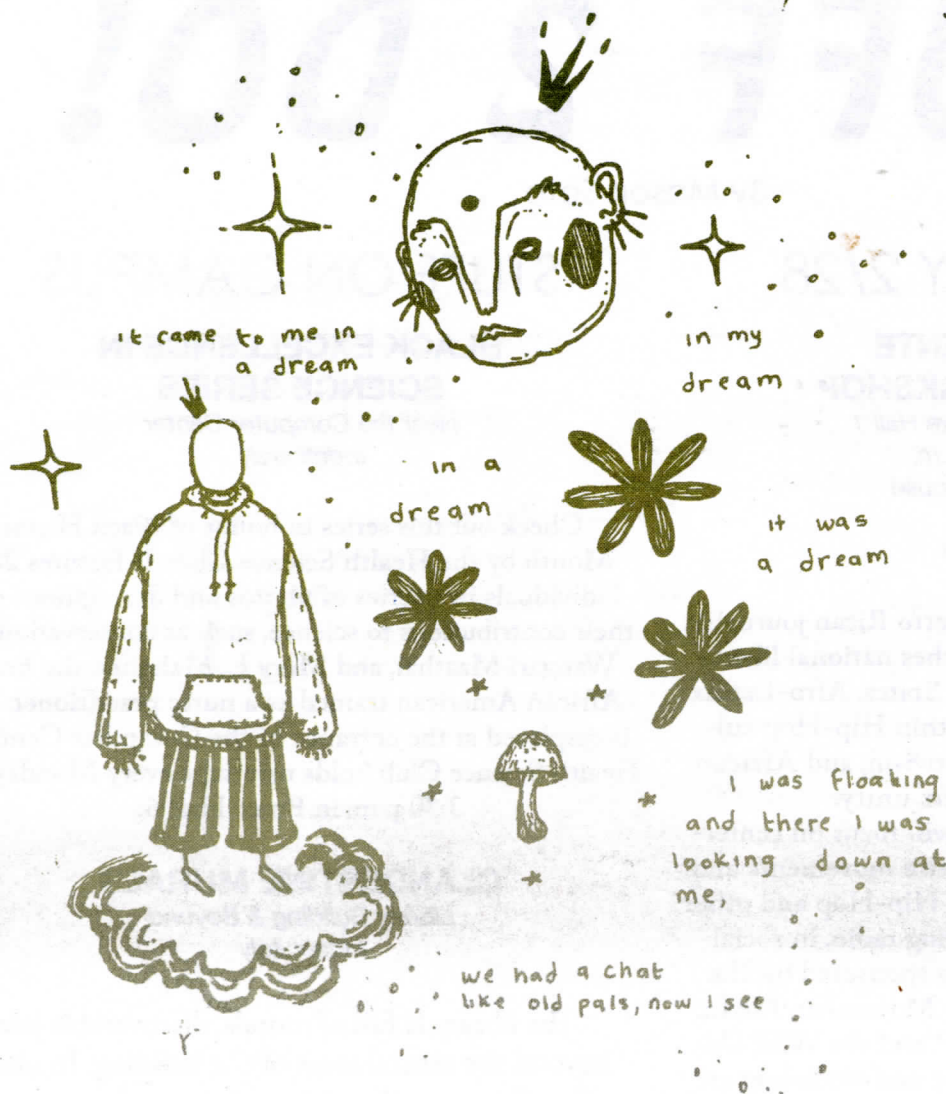 it came to me in
a dream
in my
dream
in a
dream
it was
a dream
I was floating
and there I was
looking down at
me
we had a chat
like old pals, now I see